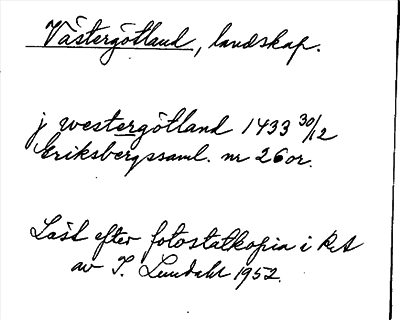 Västergötland, landskap.
j westergötland 1433 30/12
Eriksbergssaml. nr 26 or.
Läst efter fotostatkopia i RA
av I. Lundahl 1952.